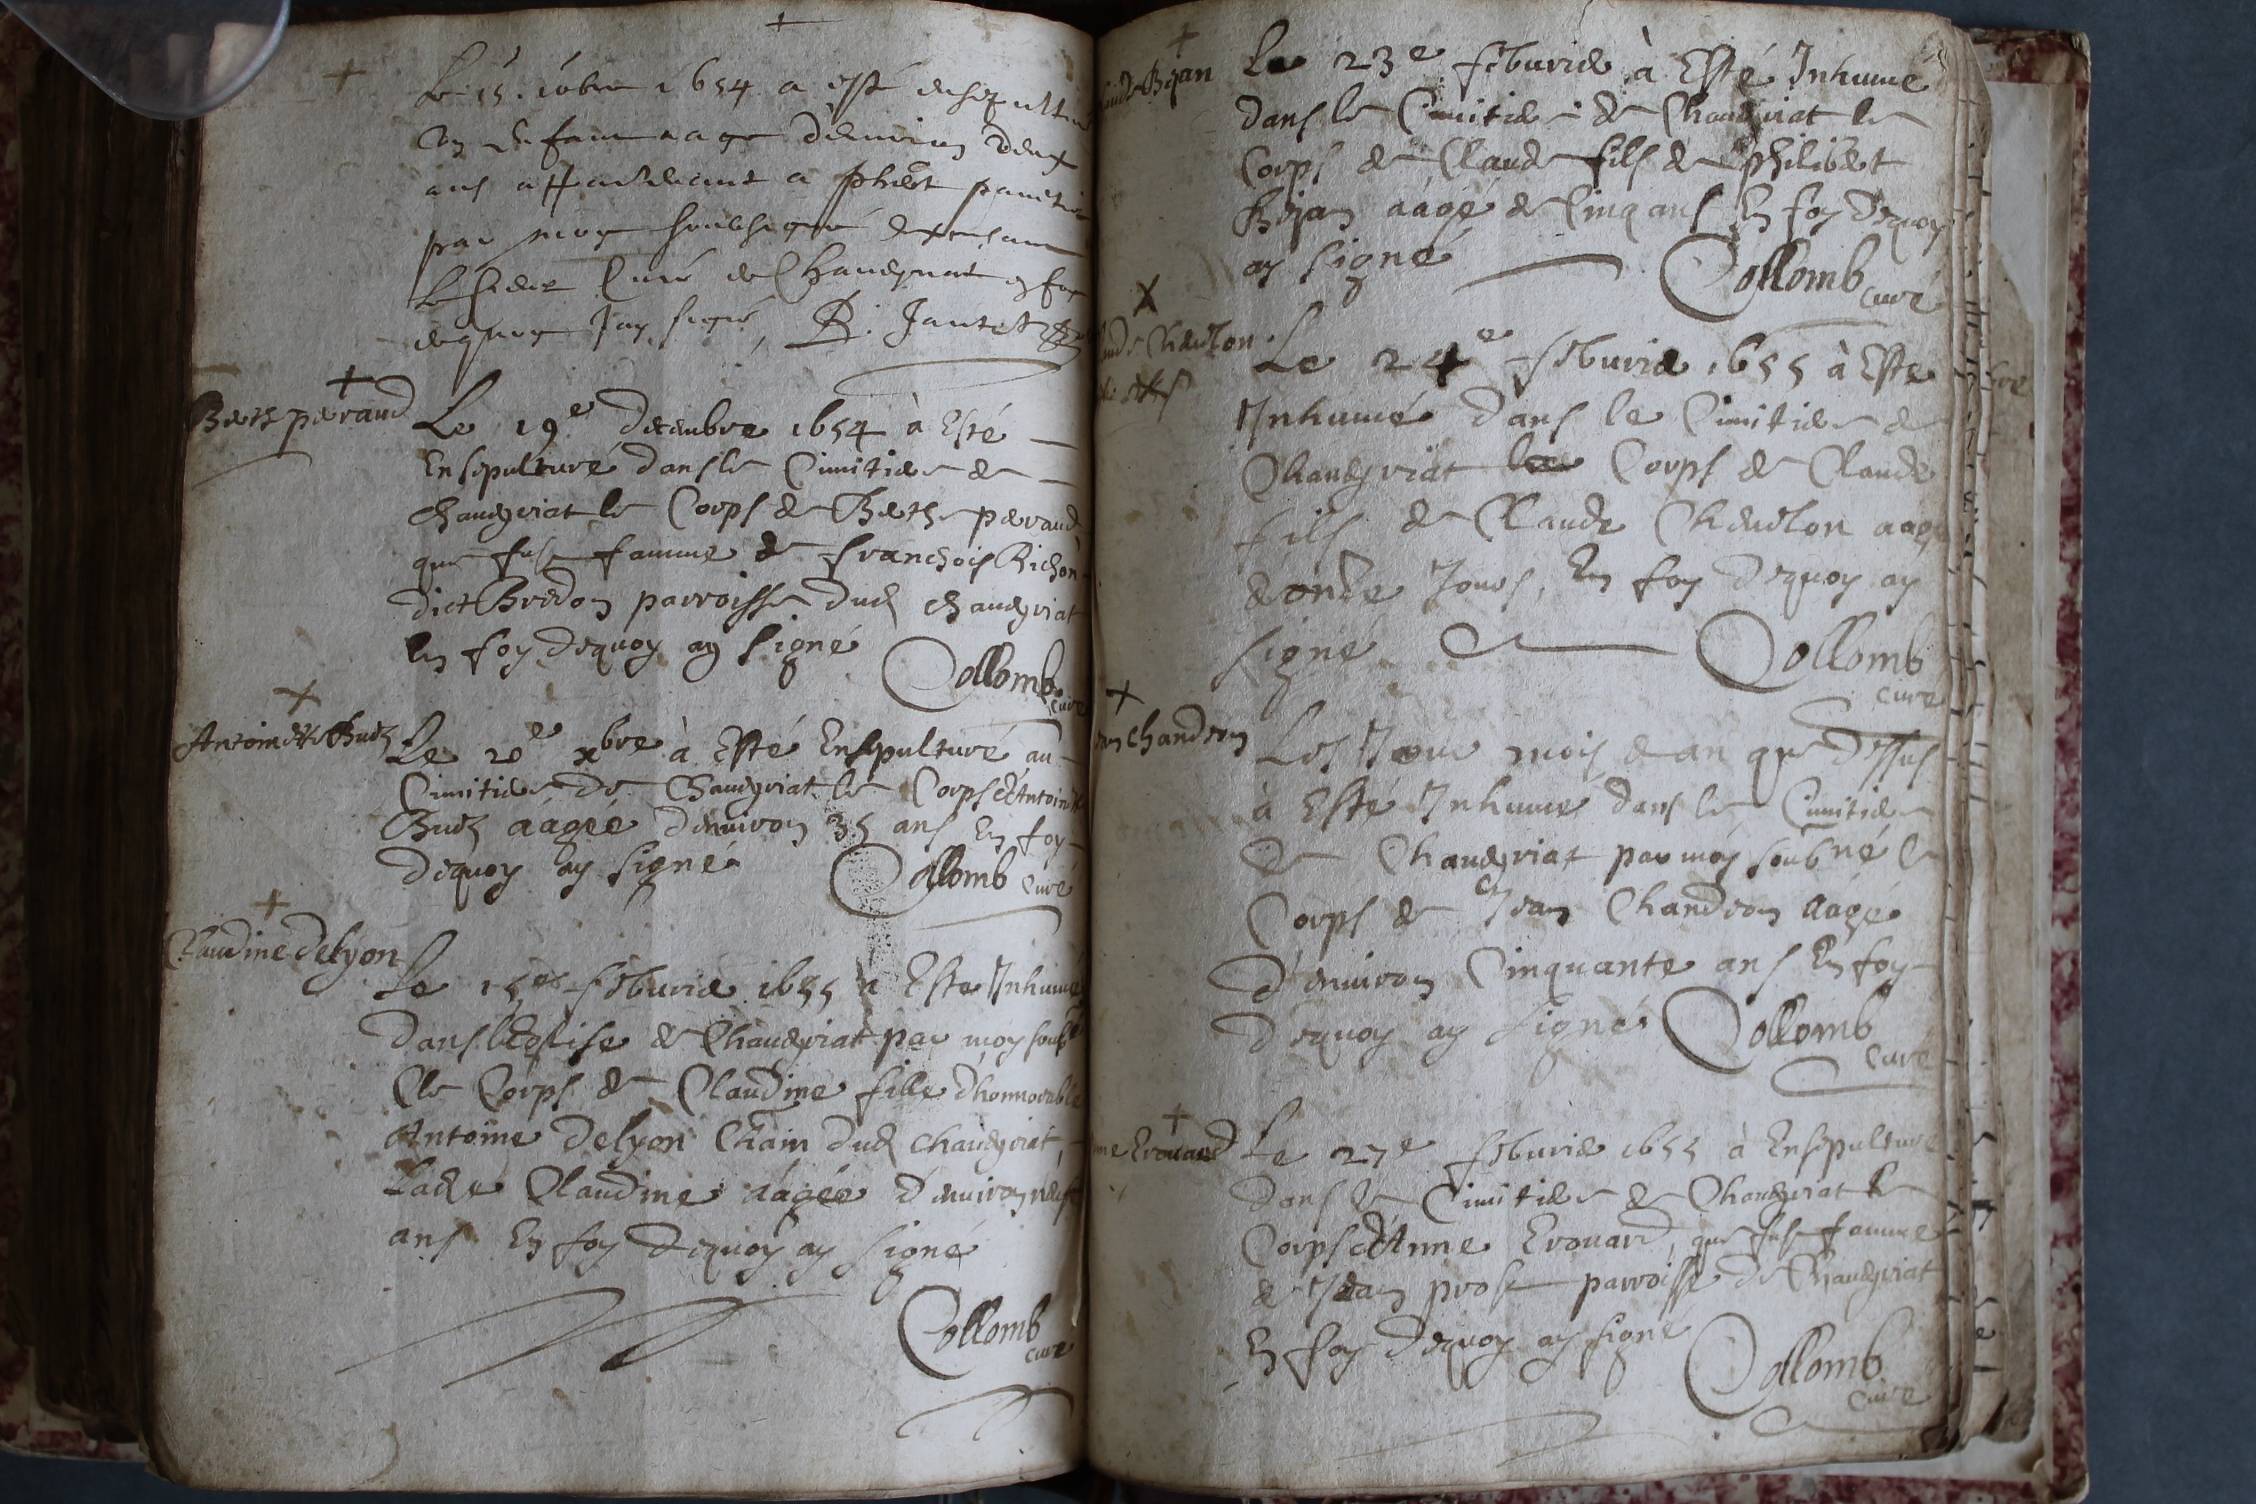 Le 15. 10bre 1654 a esté ensepultu
un enfan aage denviron deux
ans appartenant a phibert
par moy soubsigné
le sieur Curé de Chaveyriat en foy
dequoy Jay signé, B. Jantet
Berthe peraud
Le 19e Decembre 1654 à Esté
Ensepulturé dans le Cimitiere de
chaveyriat le Corps de Berthe peraud
que fust famme de Franchois Bichon
dict Bredon parroisse dud chaveyriat
En foy dequoy ay signé
Collomb curé
Antoinette Buez
Le 20e xbre à Esté Ensepulturé au
Cimitiere de Chaveyriat le Corps d'Antoinette
Buez aagée denviron 35 ans En foy
dequoy ay signé Collomb curé
Claudine delyon
Le 15e feburier 1655 a Esté Inhumé
dans lEglise de Chaveyriat par moy soubsé
le Corps de Claudine fille dhonnorable
Antoine Delyon Chain dud chaveyriat,
ladte Claudine aagée denviron neuf
ans En foy dequoy ay signé
Collomb
curé
Claude Bejan
Le 23e feburier à Esté Inhumé
dans le Cimitiere de Chaveyriat le
Corps de Claude fils de philibert
Bejan aagé de Cinq ans En foy dequoy
ay signé Collomb curé
Claude Cheuelon
Le 24e feburier 1655 à Esté
Inhumé dans le Cimitiere de
Chaveyriat le Corps de Claude
fils de Claude Cheuelon aagé
de onze Jours, En foy dequoy ay
signé Collomb
curé
Jean Chandron
Les Jour mois & an que dessus
à Esté Inhumé dans le Cimitiere
de Chaveyriat par moy soubné le
Corps de Jean Chandron aagé
d'environ Cinquante ans En foy
dequoy ay signé Collomb
curé
Anne Erouard
Le 27e feburier 1655 à Ensepulturé
dans le Cimitiere de Chaveyriat le
Corps d'Anne Erouard, que fust famme
de Jean prost parroisse de Chaveyriat
En foy dequoy ay signé
Collomb
curé